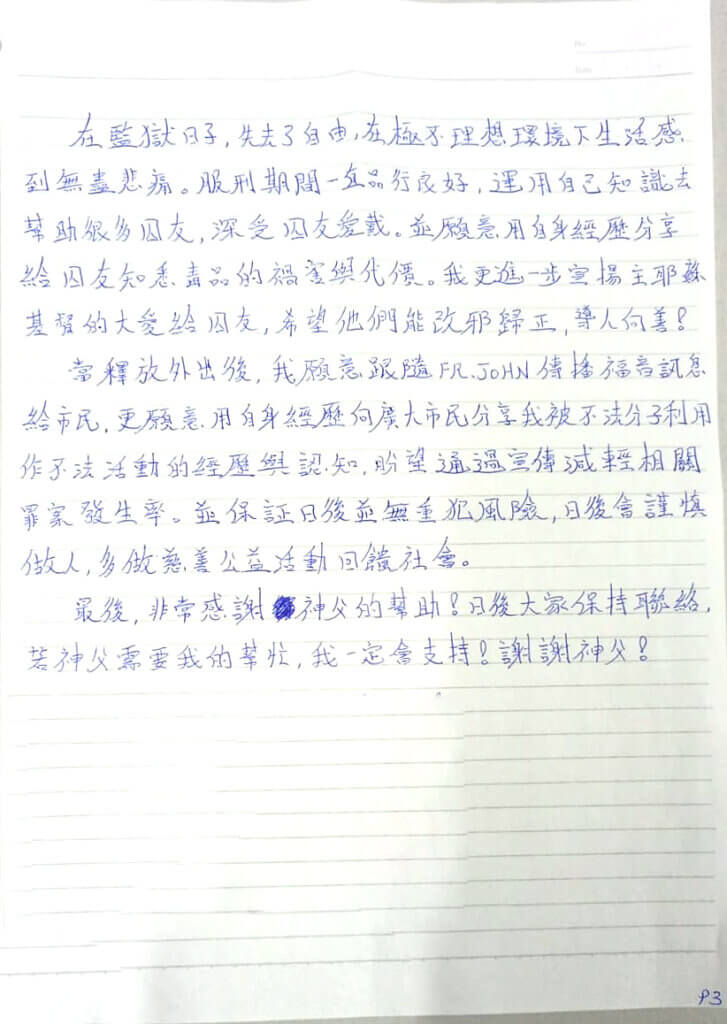 No.
Date
在監獄日子，失去了自由，在極不理想環境下生活感
到無盡悲痛。服刑期間一直品行良好，運用自己知識去
幫助很多囚友，深受囚友愛戴。並願意用自身經歷分享
給囚友知悉毒品的禍害與代價。我更進一步宣揚主耶穌
基督的大愛給囚友，希望他們能改邪歸正，導人向善！
當釋放外出後，我願意跟隨FR.JOHN傳播福音訊息
給市民，更願意用自身經歷向廣大市民分享我被不法分子利用
作不法活動的經歷與認知，盼望通過宣傳減輕相關
罪案發生率。並保証日後並無重犯風險，日後會謹慎
做人，多做慈善公益活動回饋社會。
最後，非常感謝神父的幫助！日後大家保持聯絡，
若神父需要我的幫忙，我一定會支持！謝謝神父！
P3